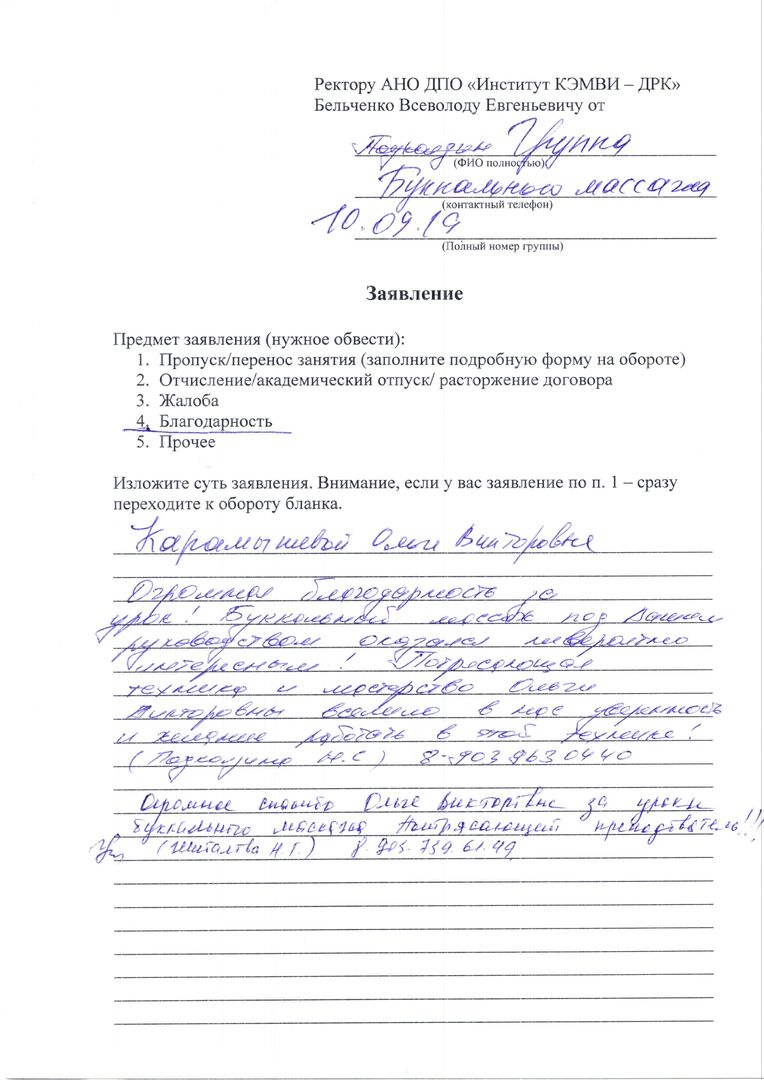 Ректору АНО ДПО «Институт КЭМВИ – ДРК»
Бельченко Всеволоду Евгеньевичу от
Группа
(ФИО полностью)
Буккального массажа
(контактный телефон)
10.09.19
(Полный номер группы)
Заявление
Предмет заявления (нужное обвести):
1. Пропуск/перенос занятия (заполните подробную форму на обороте)
2. Отчисление/академический отпуск/ расторжение договора
3. Жалоба
4. Благодарность
5. Прочее
Изложите суть заявления. Внимание, если у вас заявление по п. 1 – сразу
переходите к обороту бланка.
Карамышевой Ольге Викторовне
Огромная благодарность за
урок! Буккальный массаж под Вашим
руководством оказался невероятно
интересным! Потрясающая
техника и мастерство Ольги
Викторовны вселило в нас уверенность
и желание работать в этой технике!
(Подколзина Н.С) 8-903 963 0440
Огромное спасибо Ольге Викторовне за уроки
буккального массажа Потрясающий преподаватель!!!
Н.Г.) 8-903-759.61.49